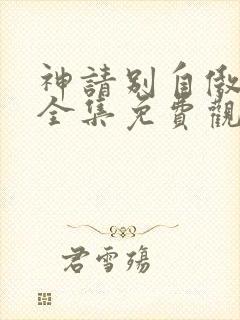 神請別自傲
全集免費觀
君雪殤